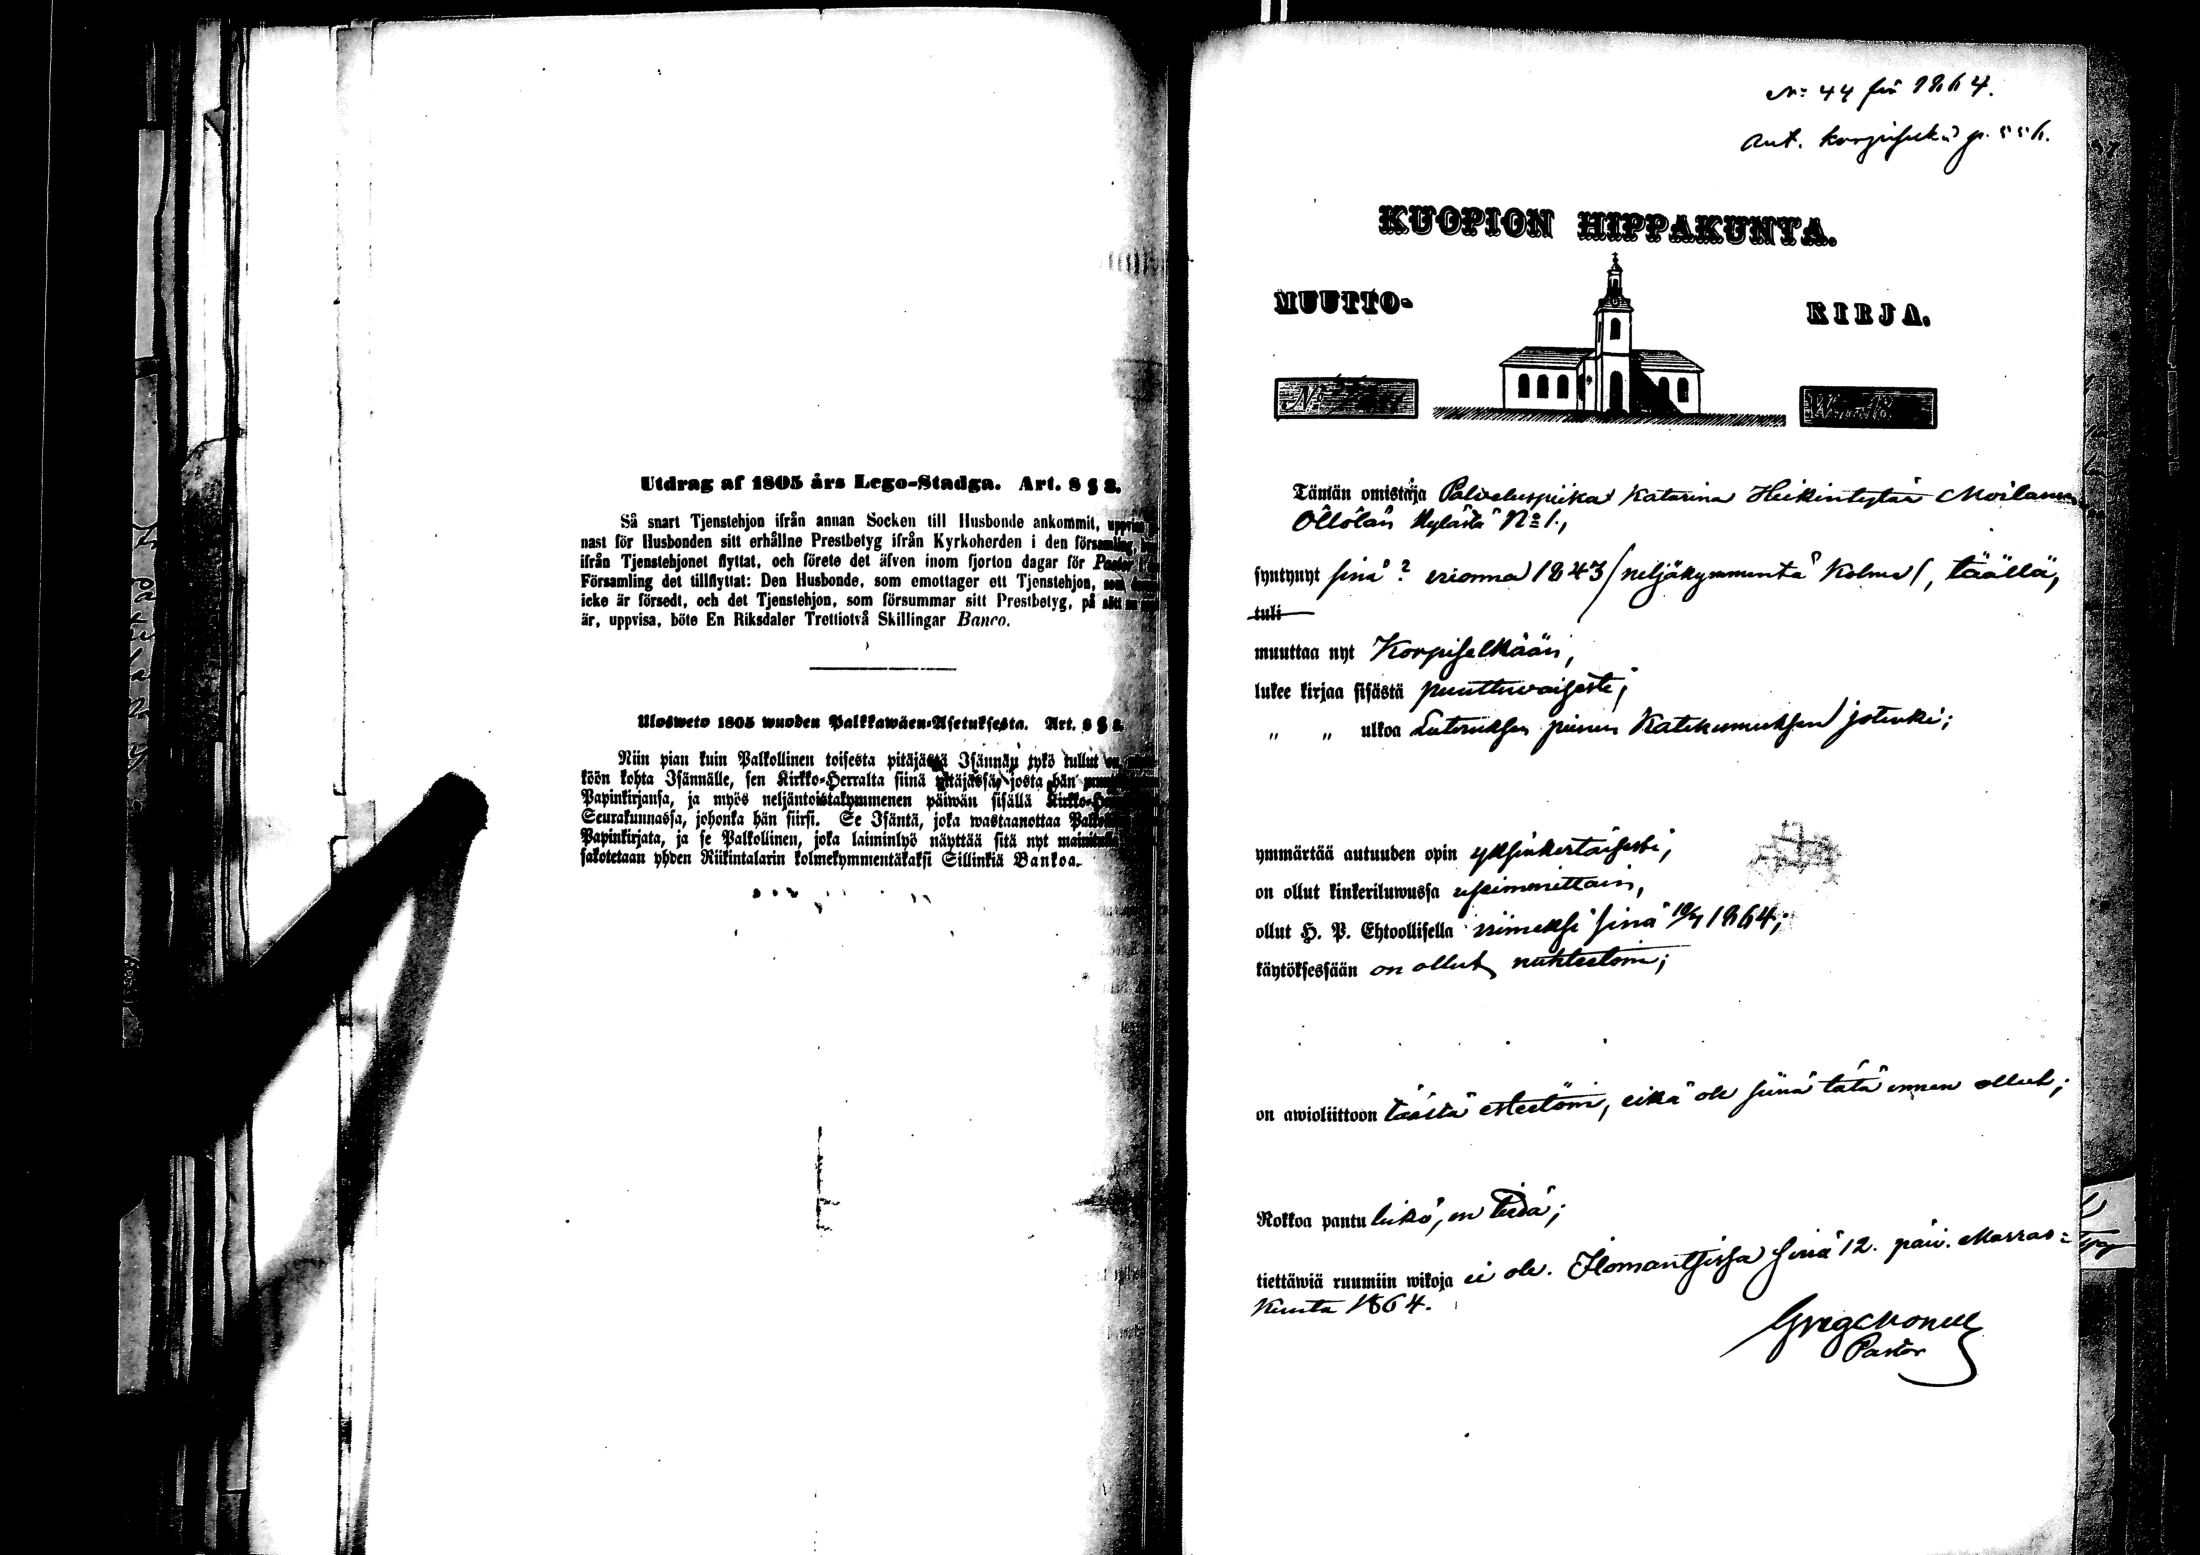 Utdrag af 1805 års Lego-Stadga. Art. 8 § 2.
Så snart Tjenstehjon ifrån annan Socken till Husbonde ankommit,
nast för Husbonden sitt erhållne Prestbetyg ifrån Kyrkoherden i den församling,
ifrån Tjenstehjonet flyttat, och förete det äfven inom fjorton dagar för Pastor
Församling det tillflyttat: Den Husbonde, som emottager ett Tjenstehjon, som
icke är försedt, och det Tjenstehjon, som försummar sitt Prestbetyg, på sätt
är, uppvisa, böte En Riksdaler Trettiotvå Skillingar Banco.
Ulosweto 1805 wuoden Palkkawäen-Asetuksesta. Art. 8 §
Niin pian kuin Palkollinen toisesta pitäjästä Isännän tykö tullut on,
köön kohta Isännälle, sen Kirkko-Herralta siinä pitäjässä, josta hän
Papinkirjansa, ja myös neljäntoistakymmenen päiwän sisällä
Seurakunnassa, johonka hän siirsi. Se Isäntä, joka wastaanottaa
Papinkirjata, ja se Palkollinen, joka laiminlyö näyttää sitä nyt
sakotetaan yhden Riikintalarin kolmekymmentäkaksi Sillinkiä Bankoa.
No 44 för 1864.
Ant. Korpiselkä p.
KUOPION HIPPAKUNTA.
MUUTTO- KIRJA.
No
Tämän omistaja Palveluspiika Katarina Heikintytär Moilanen
Ollolan Kylästä No 1.,
syntynyt sinä ? vuonna 1843 /neljäkymmentä kolme/, täällä,
tuli
muuttaa nyt Korpiselkään,
lukee kirjaa sisästä puuttuvaisesti;
" " ulkoa Luteruksen pienen Katekismuksen jotenki;
ymmärtää autuuden opin yksinkertaisesti,
on ollut kinkeriluwussa useimmittain,
ollut H. P. Ehtoollisella viimeksi sinä 10/7 1864;
käytöksessään on ollut nuhteetoin;
on awioliittoon täästä esteetöin, eikä ole siinä tätä ennen ollut;
Rokkoa pantu liekö, en tiedä;
tiettäwiä ruumiin wikoja ei ole. Ilomantsissa sinä 12. päiv. Marras=
kuuta 1864.
Pastor